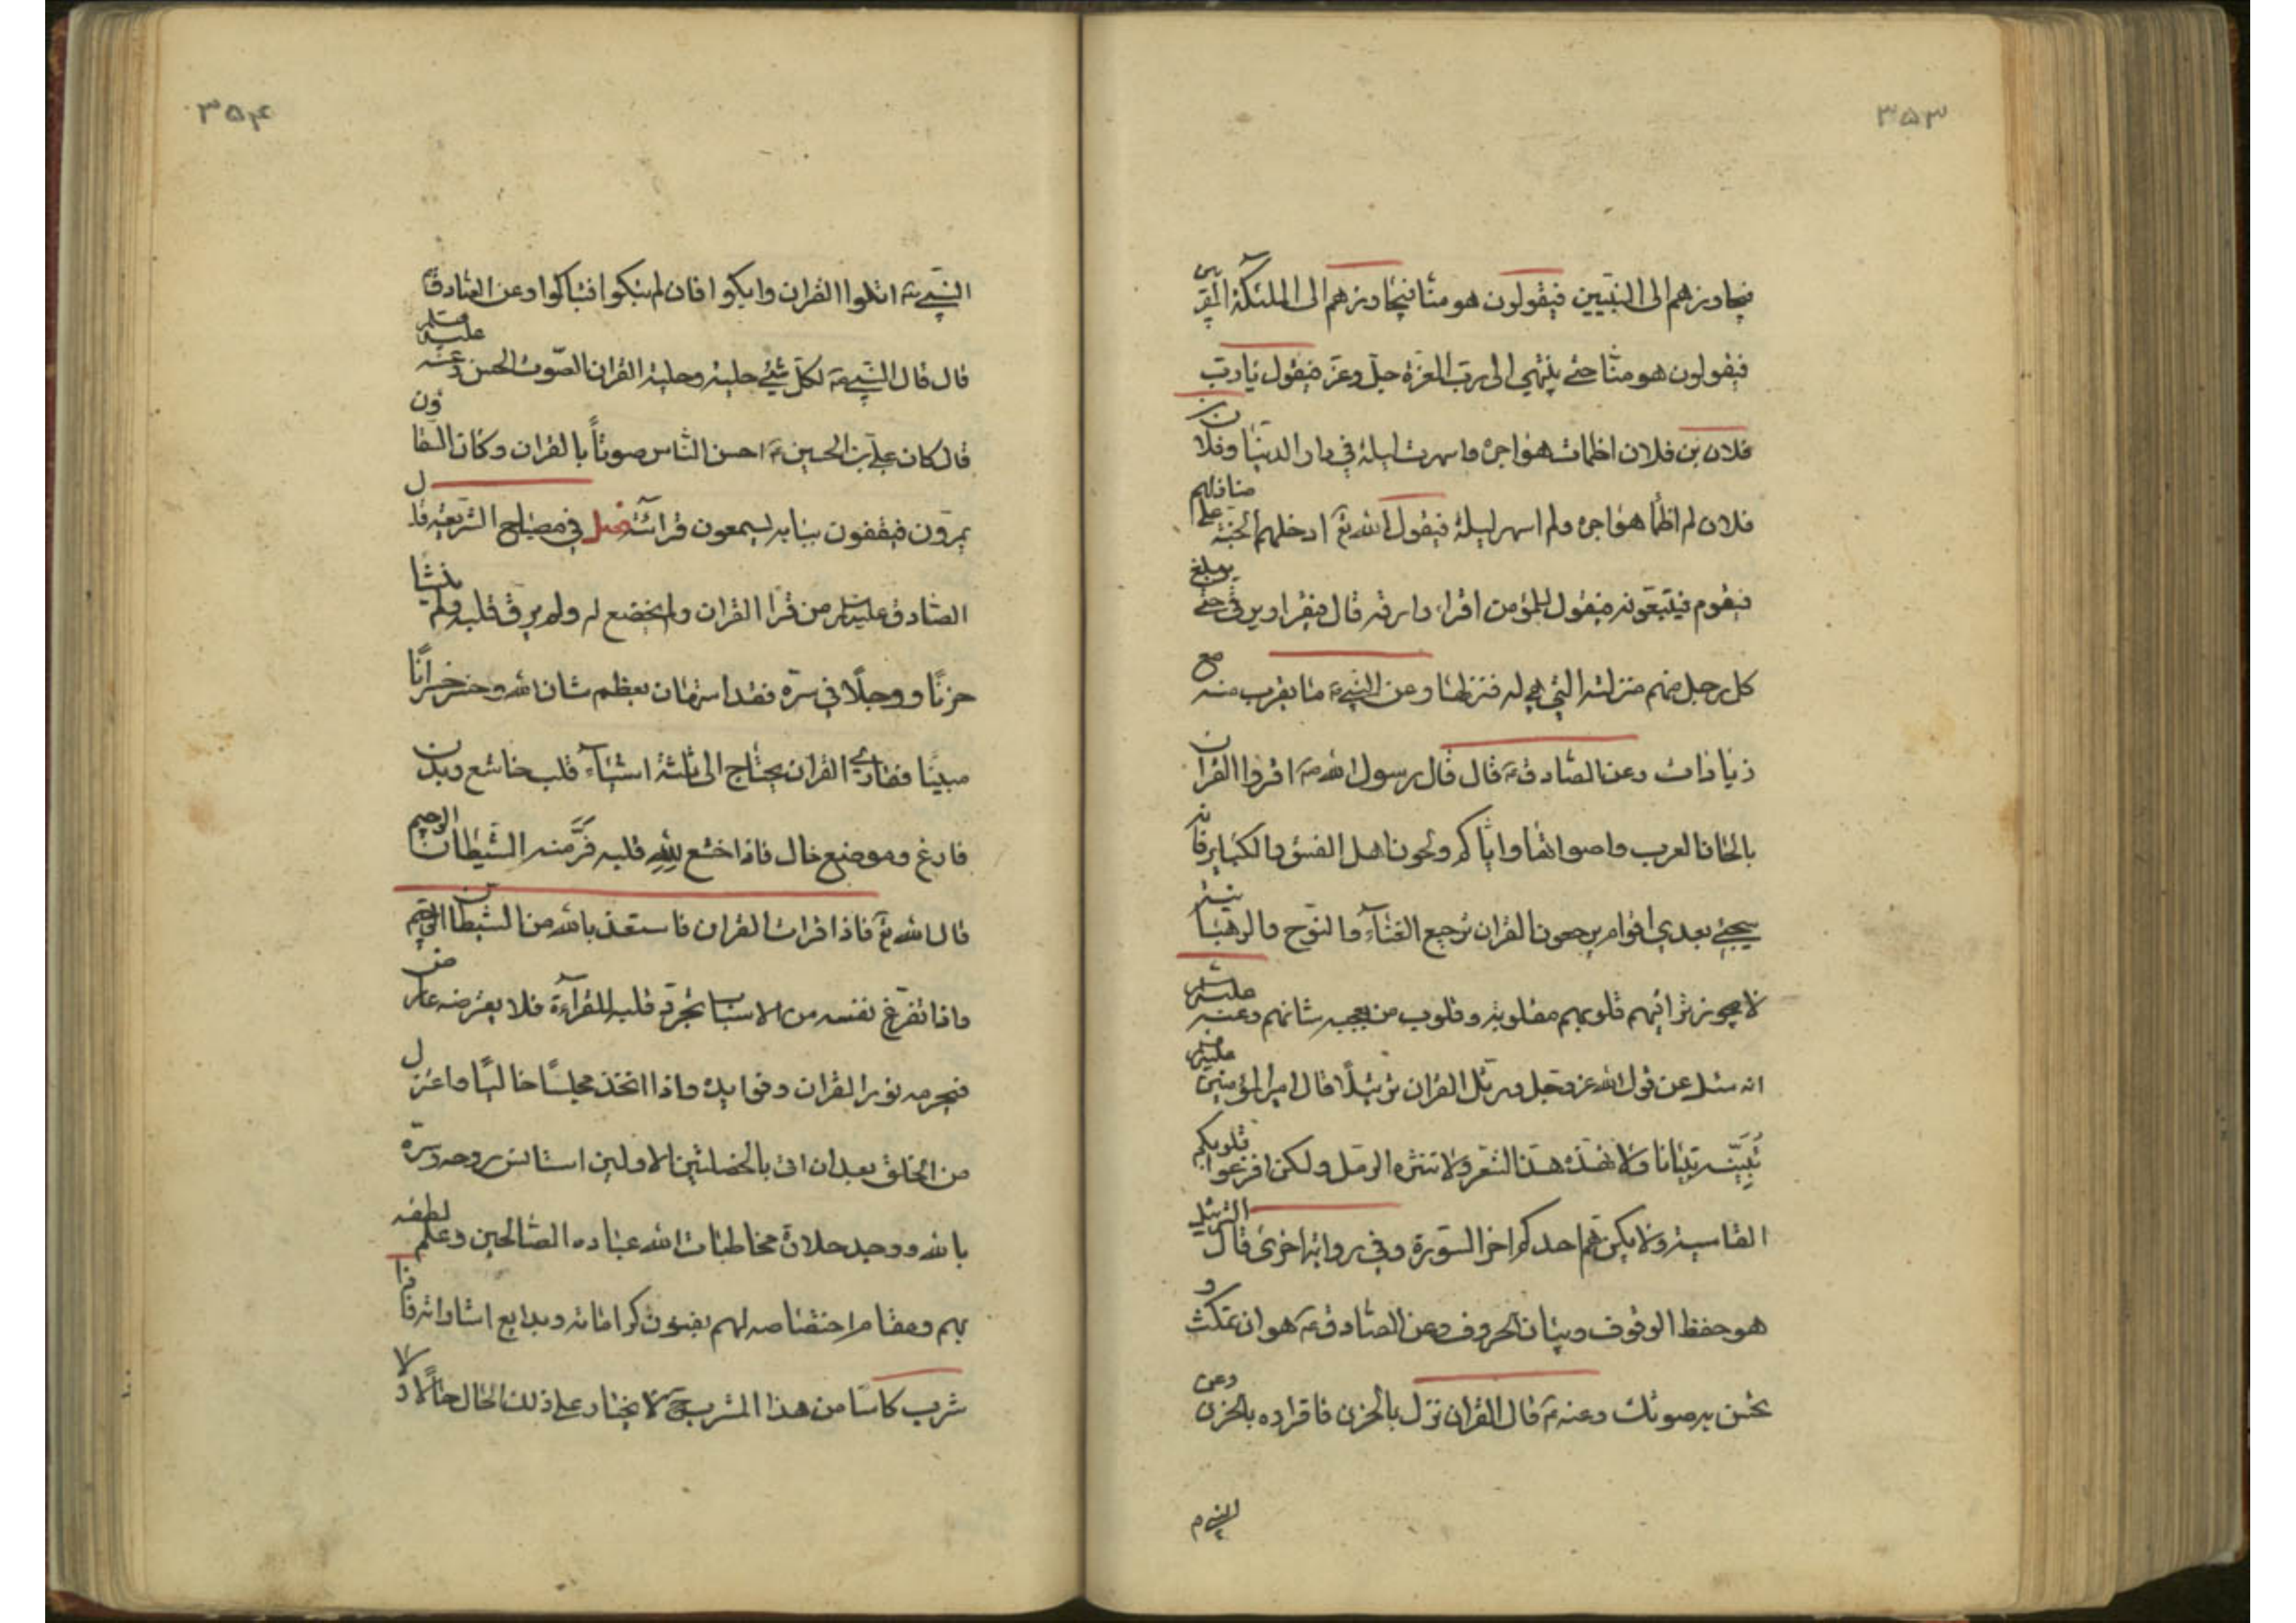 ۳۵۳
فيجاوزهم الى النبيين فيقولون هو منا فيجاوزهم الى الملئكة المقربين
فيقولون هو منا حتى ينتهي الى رب العزة جل وعز فيقول يا رب
فلان بن فلان اظمات هواجره واسهرت ليله في دار الدنيا وفلان
فلان لم اظمأ هواجره ولم اسهر ليله فيقول الله تع ادخلهم الجنة على منازلهم
فيقوم فيتبعونه فيقول للمؤمن اقرا وارقه قال فيقرا ويرقى حتى يبلغ
كل رجل منهم منزلته التي هي له فينزلها وعن النبي ص ما يقرب منه مع
زيادات وعن الصادق ع قال قال رسول الله ص اقروا القران
بالحان العرب واصواتها واياكم ولحون اهل الفسق والكباير فانه
سيجئ بعدي اقوام يرجعون القران ترجيع الغنآء والنوح والرهبانية
لا يجوز تراقيهم قلوبهم مقلوبة وقلوب من يعجبه شانهم وعنه عليه السلم
انه سئل عن قول الله عز وجل ورتل القران ترتيلًا قال امير المؤمنين عليه السلم
تُبَيّنه تبيانا ولا تهذه هذ الشعر ولا تنثره الرمل ولكن افزعوا قلوبكم
القاسية ولا يكن هم احدكم اخر السورة وفي رواية اخرى قال الترتيل
هو حفظ الوقوف وبيان الحروف وعن الصادق ع هو ان تمكث و
تحسن به صوتك وعنه ع قال القران نزل بالحزن فاقراوه بالحزن وعن
النبي ص
۳۵۴
النبي ص اتلوا القران وابكوا فان لم تبكوا فتباكوا وعن الصادق ع
قال قال النبي ص لكل شئ حلية وحلية القران الصوت الحسن وعنه عليه السلم
قال كان علي بن الحسين ع احسن الناس صوتاً بالقران وكان السقاؤن
يمرون فيقفون ببابه يسمعون قرائته فصل في مصباح الشريعة قال
الصادق عليه السلم من قرا القران ولم يخضع له ولم يرق قلبه ولم ينشا
حزنًا ووجلًا في سره فقد استهان بعظم شان الله وخسر خسرانًا
مبينًا فقارئ القران يحتاج الى ثلثة اشيآء قلب خاشع وبدن
فارغ وموضع خال فاذا خشع لِلّهِ قلبه فَرَّ منه الشيطان الرجيم
قال الله تع فاذا قرات القران فاستعذ بالله من الشيطان الرجيم
واذا تفرغ نفسه من الاسباب تجرد قلبه للقرآءة فلا يعترضه عارض
فيحرمه نور القران وفوايده واذا اتخذ مجلسًا خاليًا واعتزل
من الخلق بعد ان اتى بالخصلتين الاولين استانس روحه وسره
بالله ووجد حلاوة مخاطبات الله عباده الصالحين وعلم لطفه
بهم ومقام اختصاصه لهم بفنون كراماته وبدايع اشاراته فاذا
شرب كاسًا من هذا المشرب ح لا يختار على ذلك الحال حالًا ولا